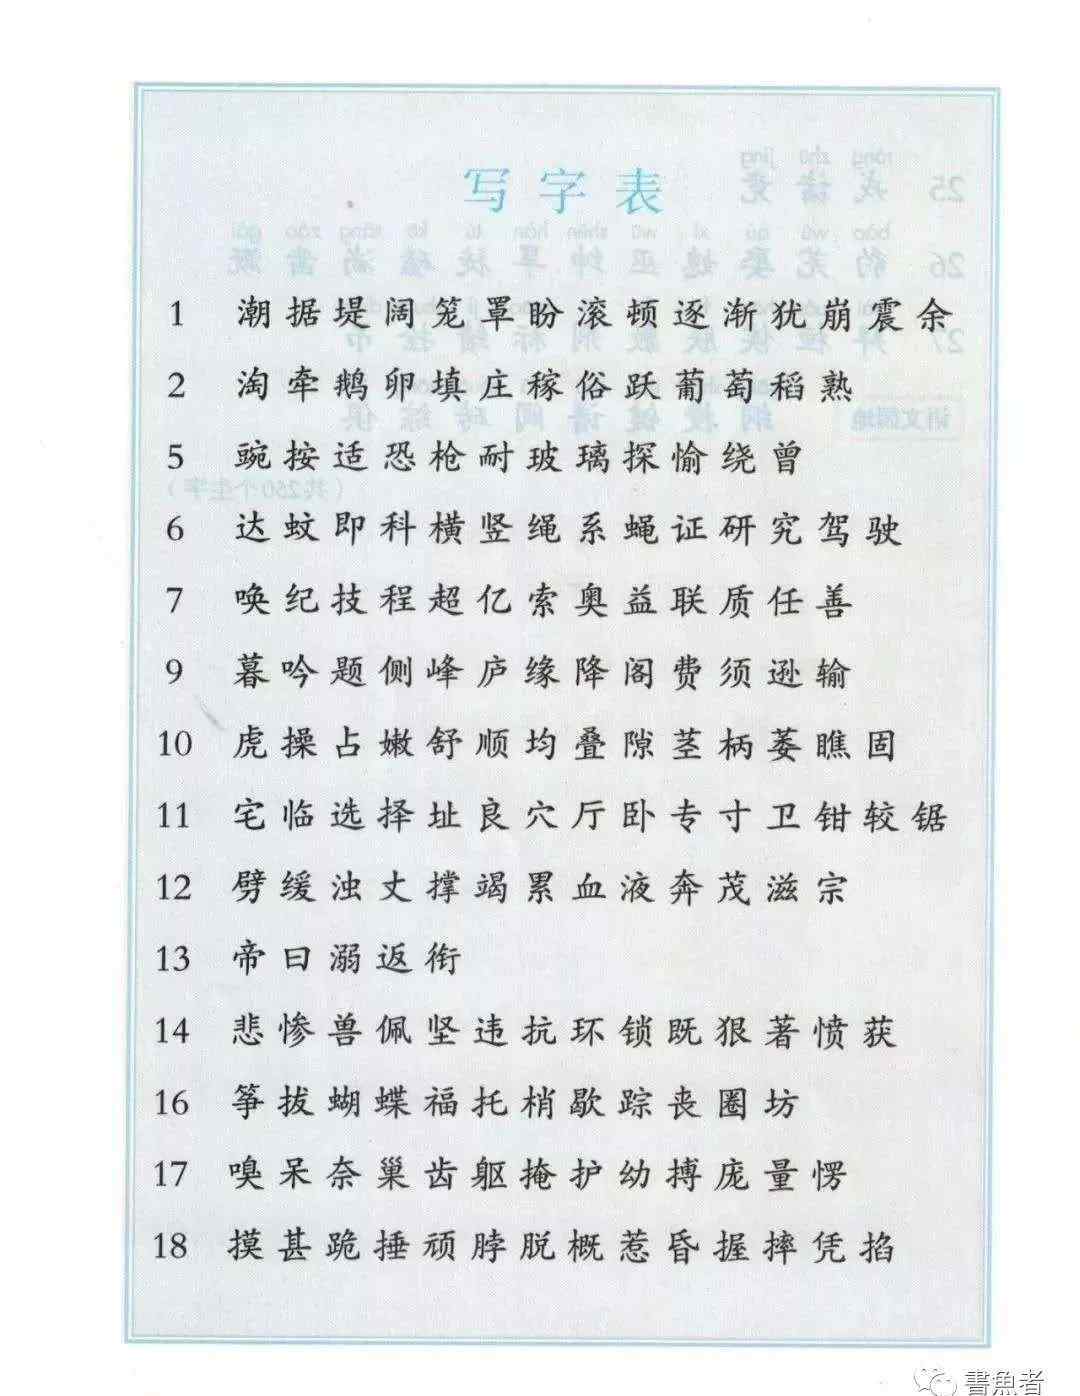 写字表
1 潮据堤阔笼罩盼滚顿逐渐犹崩震余
2 淘牵鹅卵填庄稼俗跃葡萄稻熟
5 豌按适恐枪耐玻璃探愉绕曾
6 达蚊即科横竖绳系蝇证研究驾驶
7 唤纪技程超亿索奥益联质任善
9 暮吟题侧峰庐缘降阁费须逊输
10 虎操占嫩舒顺均叠隙茎柄萎瞧固
11 宅临选择址良穴厅卧专寸卫钳较锯
12 劈缓浊丈撑竭累血液奔茂滋宗
13 帝曰溺返衔
14 悲惨兽佩坚违抗环锁既狠著愤获
16 筝拔蝴蝶福托梢歇踪丧圈坊
17 嗅呆奈巢齿躯掩护幼搏庞量愣
18 摸甚跪捶顽脖脱概惹昏握摔凭掐
書魚者